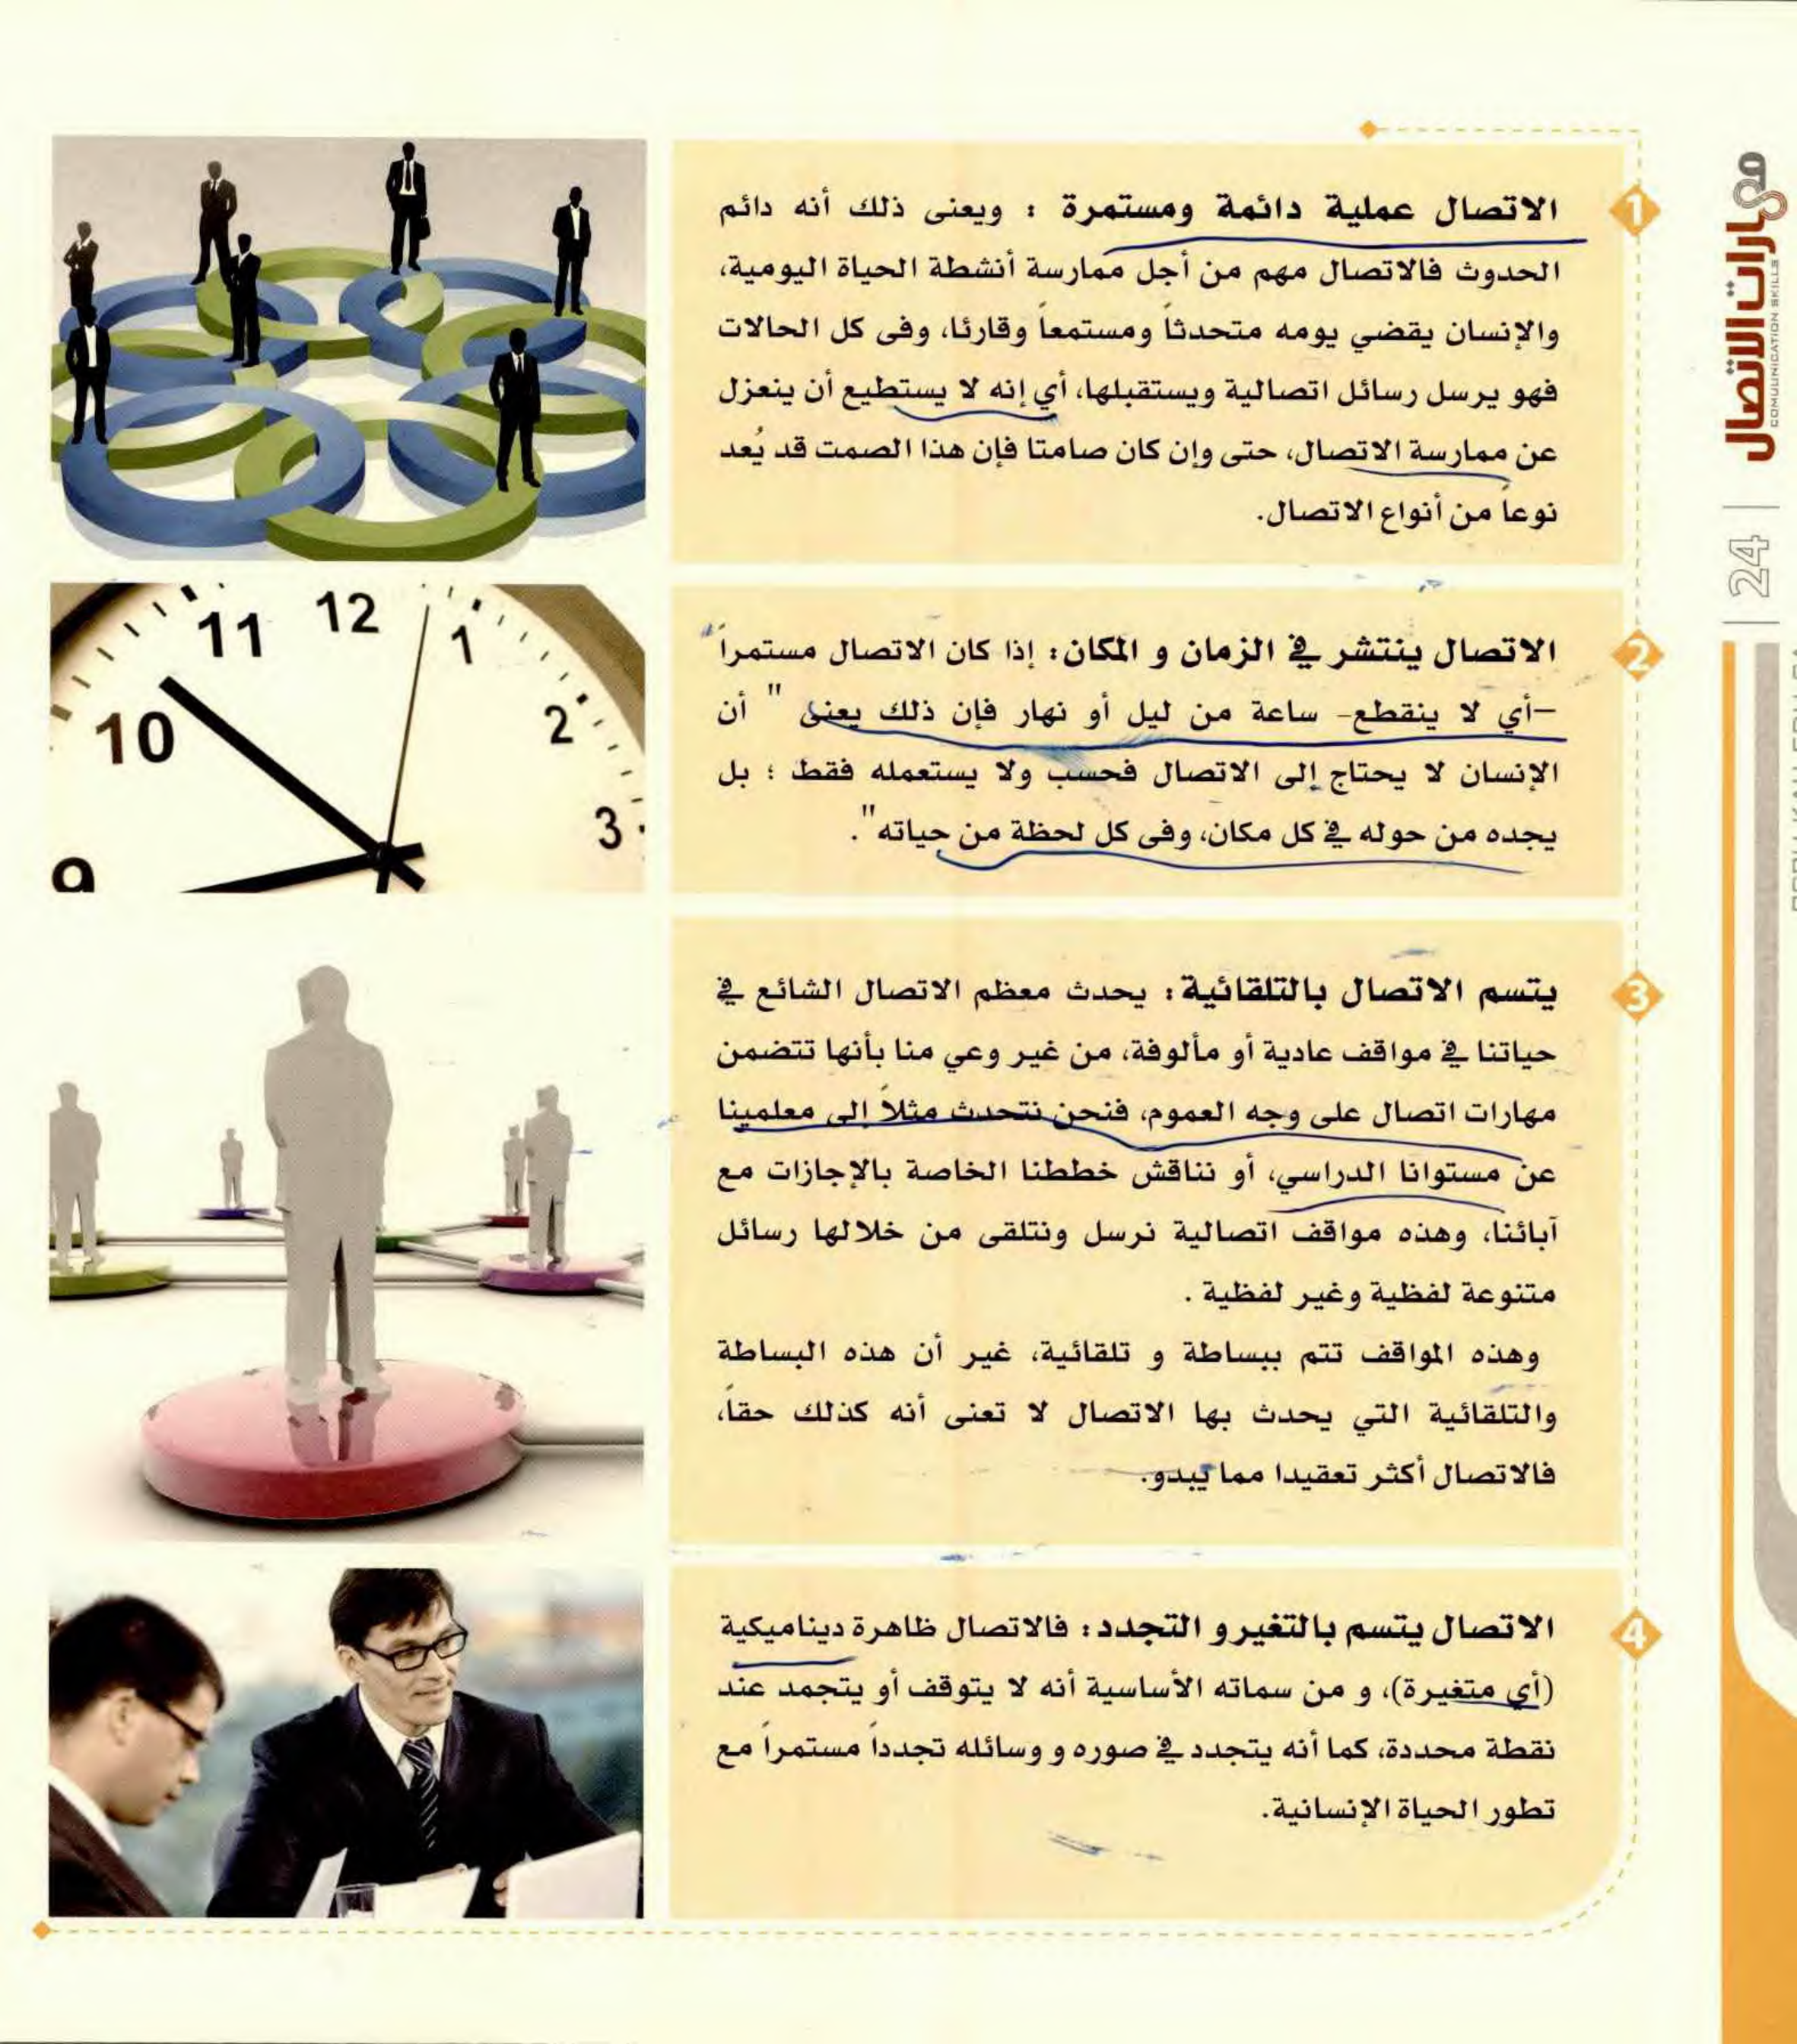 مهارات الاتصال
COMUUNICATION SKILLS
24
1
الاتصال عملية دائمة ومستمرة : ويعنى ذلك أنه دائم
الحدوث فالاتصال مهم من أجل ممارسة أنشطة الحياة اليومية،
والإنسان يقضي يومه متحدثاً ومستمعاً وقارئا، وفى كل الحالات
فهو يرسل رسائل اتصالية ويستقبلها، أي إنه لا يستطيع أن ينعزل
عن ممارسة الاتصال، حتى وإن كان صامتا فإن هذا الصمت قد يُعد
نوعاً من أنواع الاتصال.
2
الاتصال ينتشر في الزمان و المكان: إذا كان الاتصال مستمراً
–أي لا ينقطع- ساعة من ليل أو نهار فإن ذلك يعنى " أن
الإنسان لا يحتاج إلى الاتصال فحسب ولا يستعمله فقط ؛ بل
يجده من حوله في كل مكان، وفى كل لحظة من حياته".
3
يتسم الاتصال بالتلقائية: يحدث معظم الاتصال الشائع في
حياتنا في مواقف عادية أو مألوفة، من غير وعي منا بأنها تتضمن
مهارات اتصال على وجه العموم، فنحن نتحدث مثلاً إلى معلمينا
عن مستوانا الدراسي، أو نناقش خططنا الخاصة بالإجازات مع
آبائنا، وهذه مواقف اتصالية نرسل ونتلقى من خلالها رسائل
متنوعة لفظية وغير لفظية .
وهذه المواقف تتم ببساطة و تلقائية، غير أن هذه البساطة
والتلقائية التي يحدث بها الاتصال لا تعنى أنه كذلك حقاً،
فالاتصال أكثر تعقيدا مما يبدو.
4
الاتصال يتسم بالتغير و التجدد: فالاتصال ظاهرة ديناميكية
(أي متغيرة)، و من سماته الأساسية أنه لا يتوقف أو يتجمد عند
نقطة محددة، كما أنه يتجدد في صوره و وسائله تجدداً مستمراً مع
تطور الحياة الإنسانية.
11 12 1
10 2
9 3